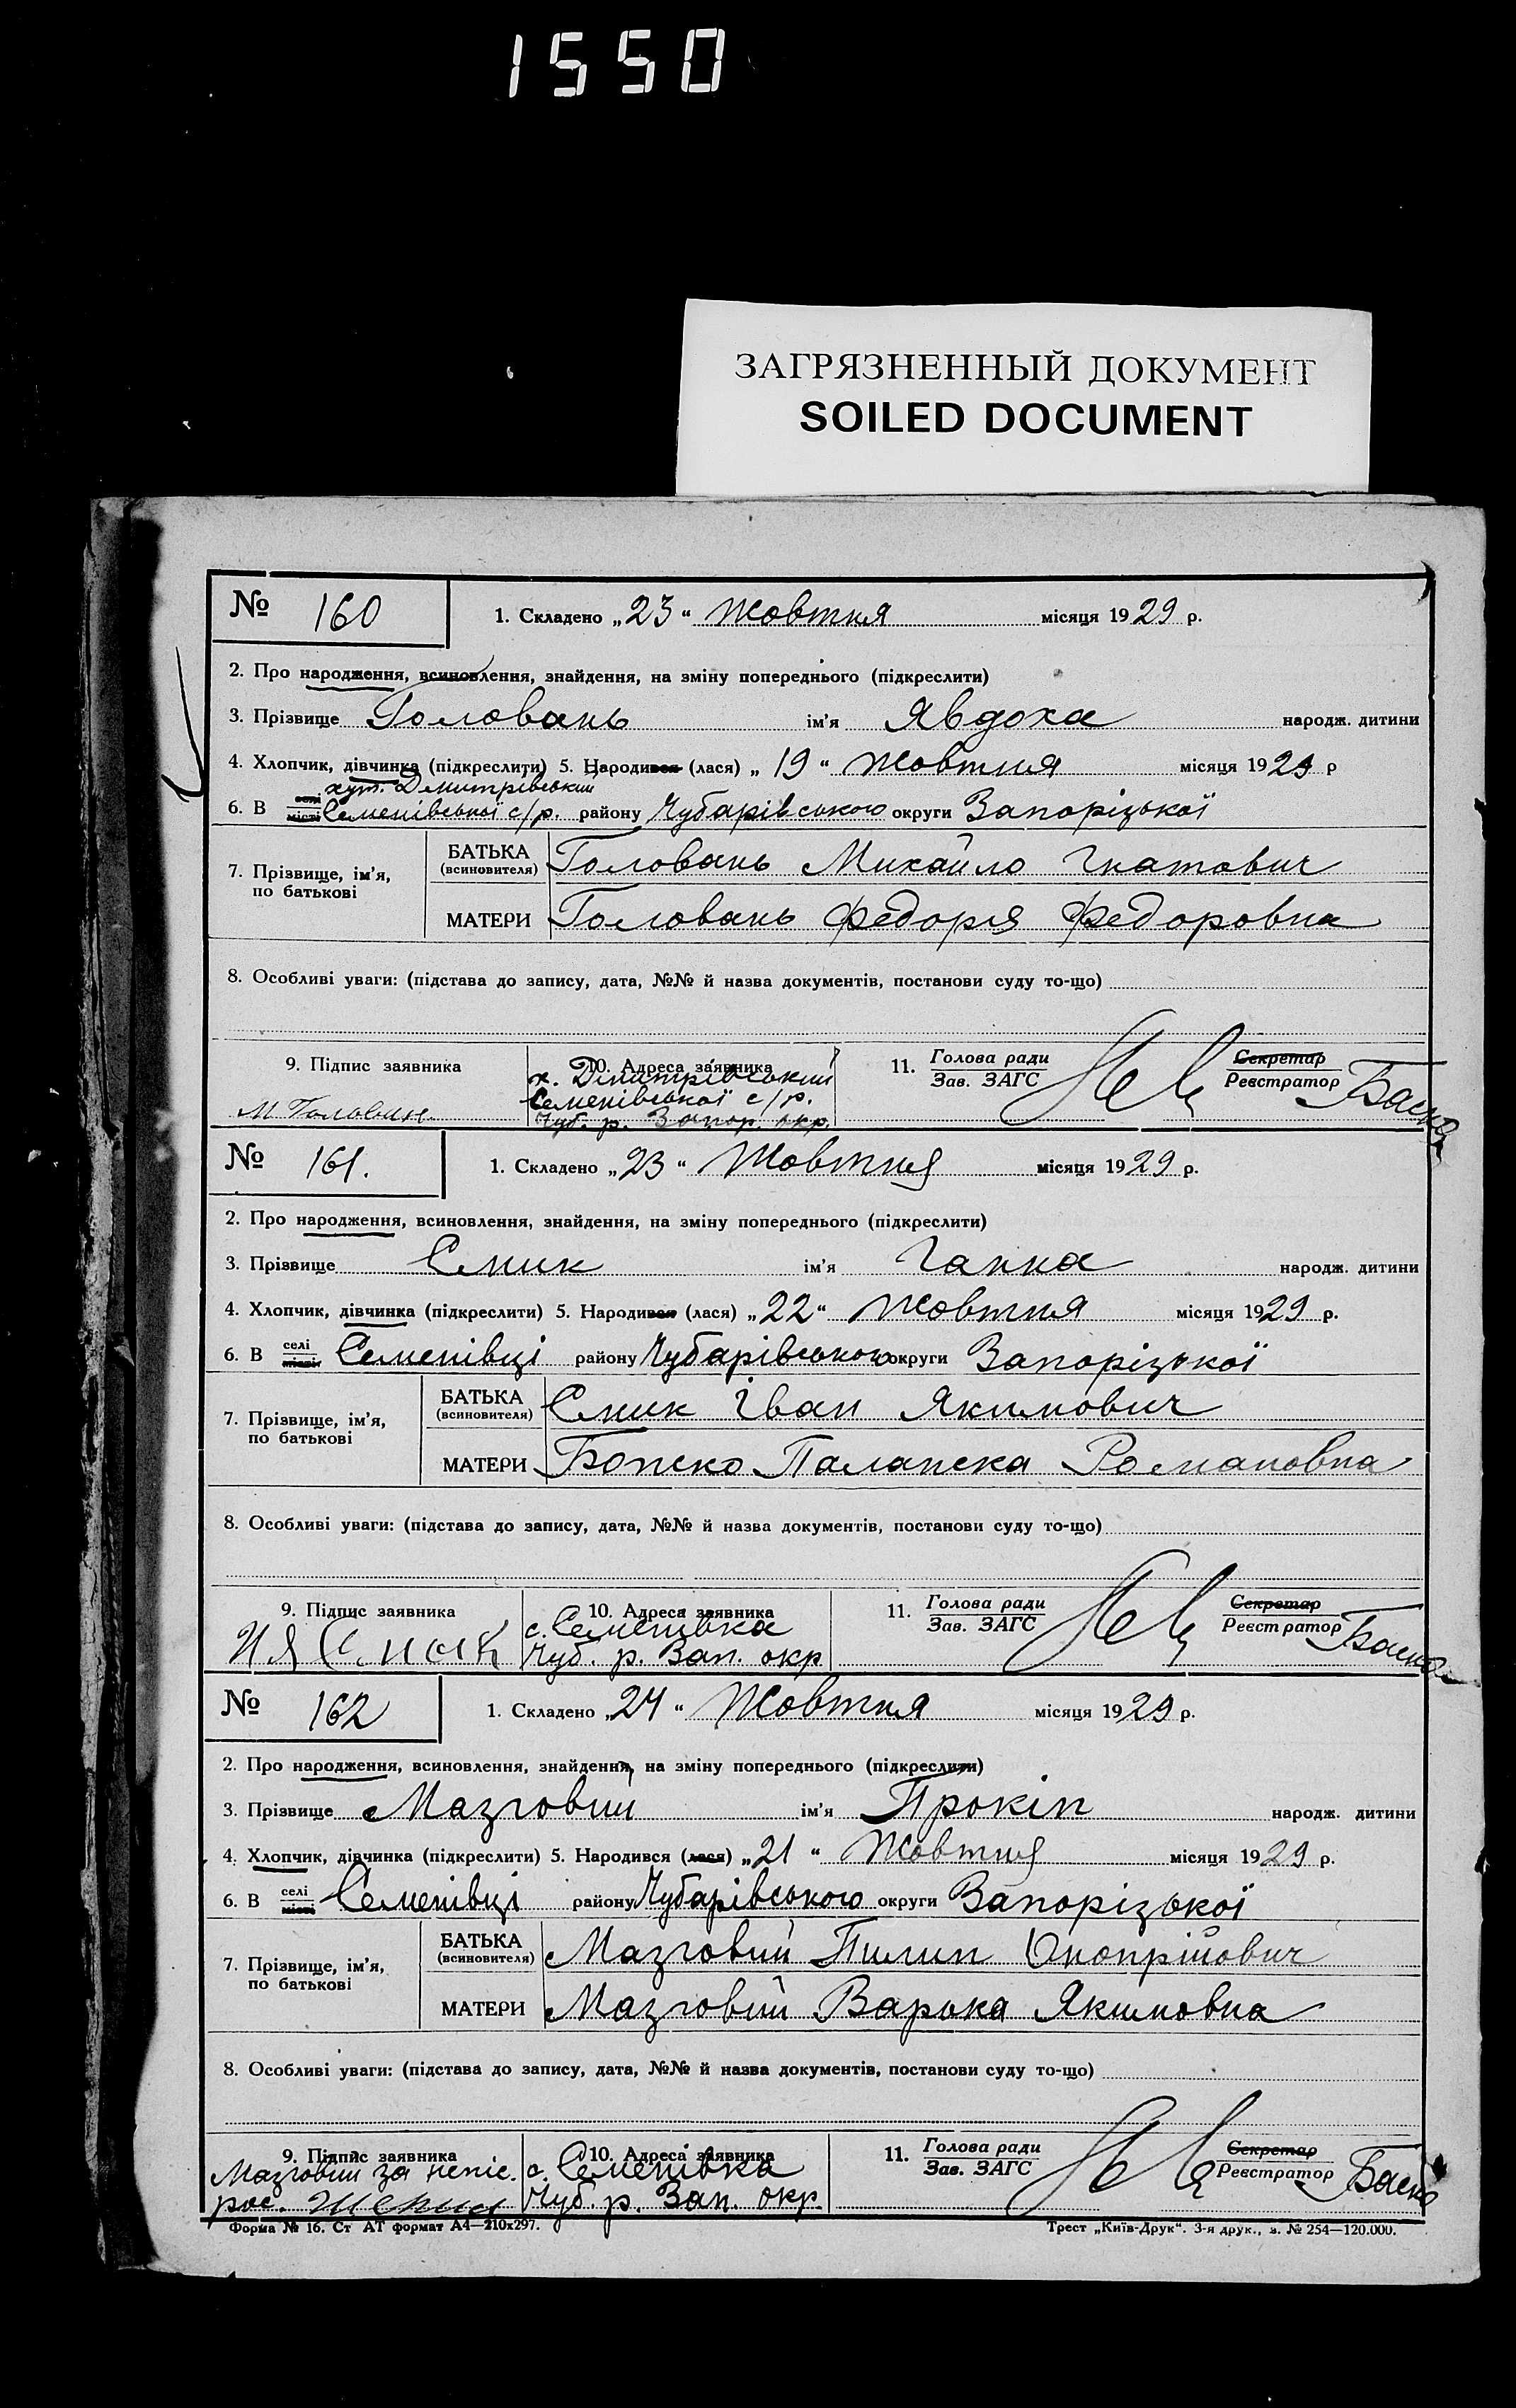 1550
ЗАГРЯЗНЕННЫЙ ДОКУМЕНТ
SOILED DOCUMENT
№ 160 1. Складено „23“ Жовтня місяця 1929 р.
2. Про народження, всиновлення, знайдення, на зміну попереднього (підкреслити)
3. Прізвище Головань ім'я Явдоха народж. дитини
4. Хлопчик, дівчинка (підкреслити) 5. Народився (лася) „19“ Жовтня місяця 1929 р
хут. Дмитрівський
6. В селі місті Семенівської с/р. району Чубарівського округи Запорізької
7. Прізвище, ім'я, по батькові
БАТЬКА (всиновителя) Головань Михайло Гнатович
МАТЕРИ Головань Федоря Федоровна
8. Особливі уваги: (підстава до запису, дата, №№ й назва документів, постанови суду то-що)
9. Підпис заявника 10. Адреса заявника 11. Голова ради Зав. ЗАГС Секретар Реєстратор
М Головань
х. Дмитрівський
Семенівської с/р.
Чуб. р. Запор. окр.
№ 161. 1. Складено „23“ Жовтня місяця 1929 р.
2. Про народження, всиновлення, знайдення, на зміну попереднього (підкреслити)
3. Прізвище Смик ім'я Ганна народж. дитини
4. Хлопчик, дівчинка (підкреслити) 5. Народився (лася) „22“ Жовтня місяця 1929 р.
6. В селі місті Семенівці району Чубарівського округи Запорізької
7. Прізвище, ім'я, по батькові
БАТЬКА (всиновителя) Смик Іван Якимович
МАТЕРИ Палажка Романовна
8. Особливі уваги: (підстава до запису, дата, №№ й назва документів, постанови суду то-що)
9. Підпис заявника 10. Адреса заявника 11. Голова ради Зав. ЗАГС Секретар Реєстратор
И Я Смик
с. Семенівка
Чуб. р. Зап. окр
№ 162 1. Складено „24“ Жовтня місяця 1929 р.
2. Про народження, всиновлення, знайдення, на зміну попереднього (підкреслити)
3. Прізвище Мазговий ім'я Прокіп народж. дитини
4. Хлопчик, дівчинка (підкреслити) 5. Народився (лася) „21“ Жовтня місяця 1929 р.
6. В селі місті Семенівці району Чубарівського округи Запорізької
7. Прізвище, ім'я, по батькові
БАТЬКА (всиновителя) Мазговий Пилип Онопрійович
МАТЕРИ Мазговий Варька Якимовна
8. Особливі уваги: (підстава до запису, дата, №№ й назва документів, постанови суду то-що)
9. Підпис заявника 10. Адреса заявника 11. Голова ради Зав. ЗАГС Секретар Реєстратор
Мазговий за непис.
рос.
с. Семенівка
Чуб. р. Зап. окр.
Форма № 16. Ст АТ формат А4—210х297. Трест „Київ-Друк“. 3-я друк., з. № 254—120.000.